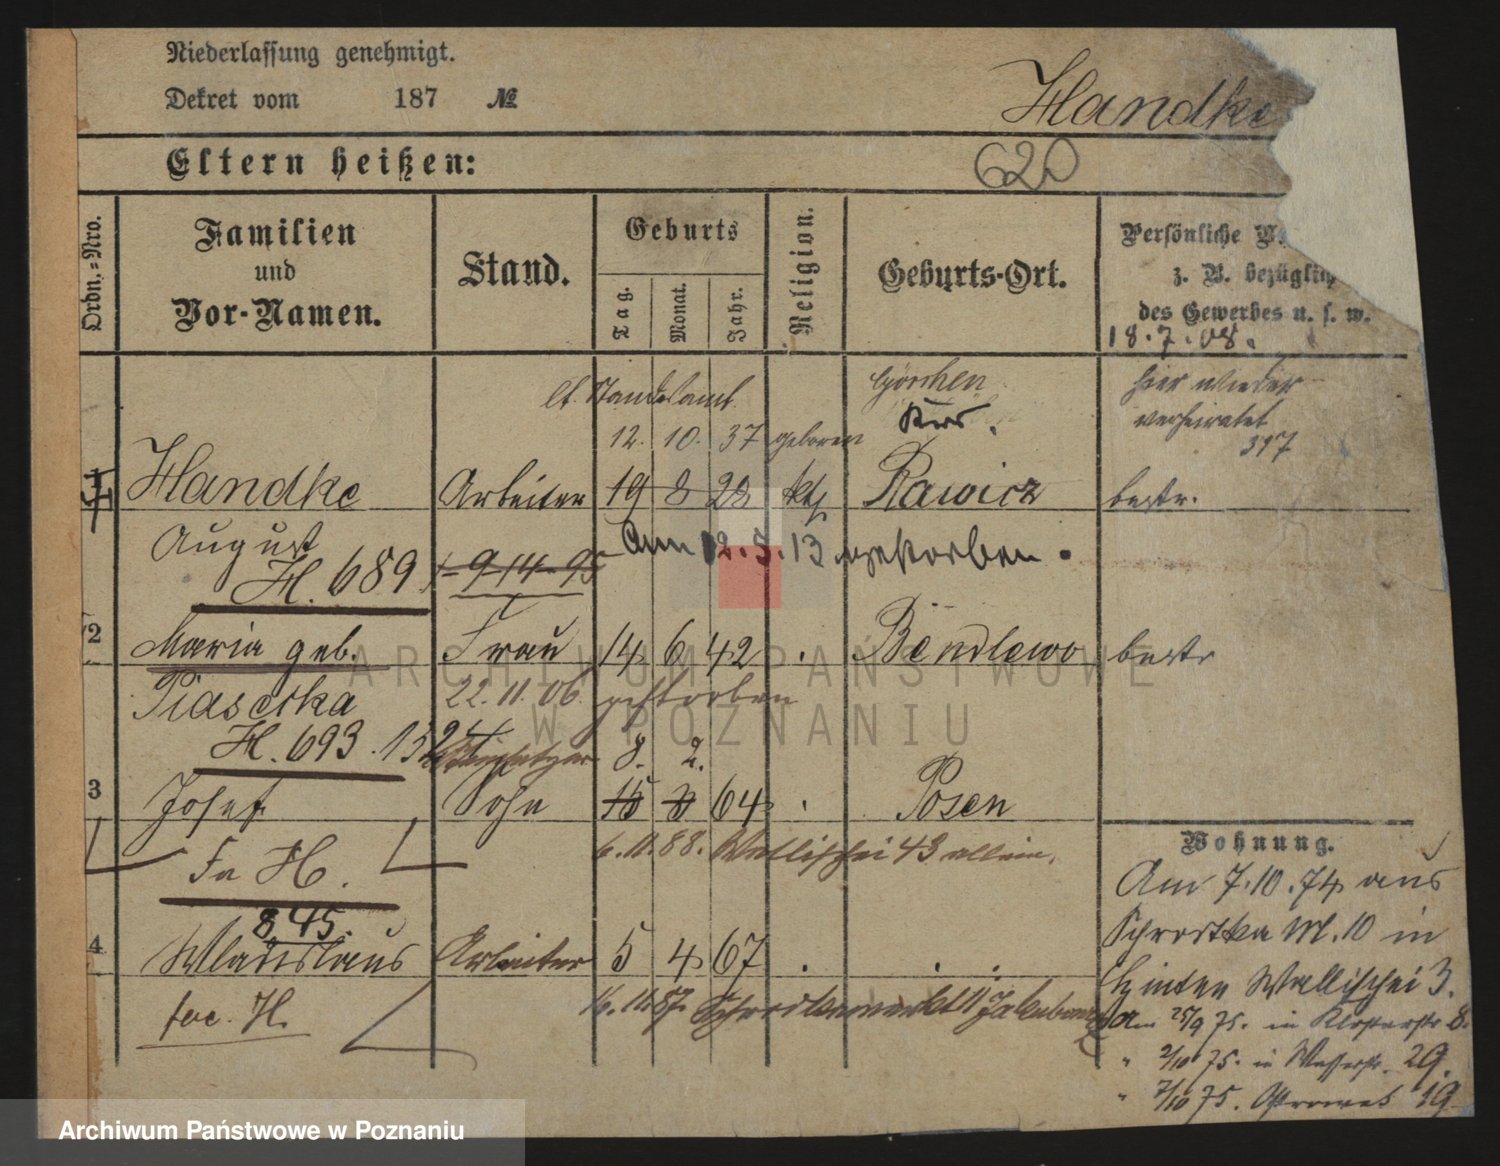 Niederlassung genehmigt.
Dekret vom 187 №
Handke
Eltern heißen:
620
Ordn.=Nro.
Familien
und
Vor-Namen.
Stand.
Geburts
Tag.
Monat.
Jahr.
Religion.
Geburts-Ort.
Persönliche
z. B. bezüglich
des Gewerbes u. s. w.
18.7.08.
lt. Standesamt
Görchen
hier wieder
verheiratet
317
12. 10. 37 geboren
Krs.
1 Handke Arbeiter 19 8 28 kth Rawicz bestr.
August
Am 12.5.13 gestorben.
H. 689
2 Maria geb. Frau 14 6 42 . Bendlewo bestr
Piasecka 22.11.06. gestorben
H. 693.
8. 2.
3 Josef Sohn 15 3 64 . Posen
6.11.88. Wallischei 43 allein.
Fa H.
845.
4 Wladislaus Arbeiter 5 4 67 . . .
16.11.87.
foc. H.
Wohnung.
Am 7.10.74 aus
Schrodka M. 10 in
Hinter Wallischei 3.
Am 25/9 75. in Klosterstr 8.
" 2/10 75. in Wasserstr. 29.
" 7/10 75. Ostrowek 19
ARCHIWUM PAŃSTWOWE
W POZNANIU
Archiwum Państwowe w Poznaniu